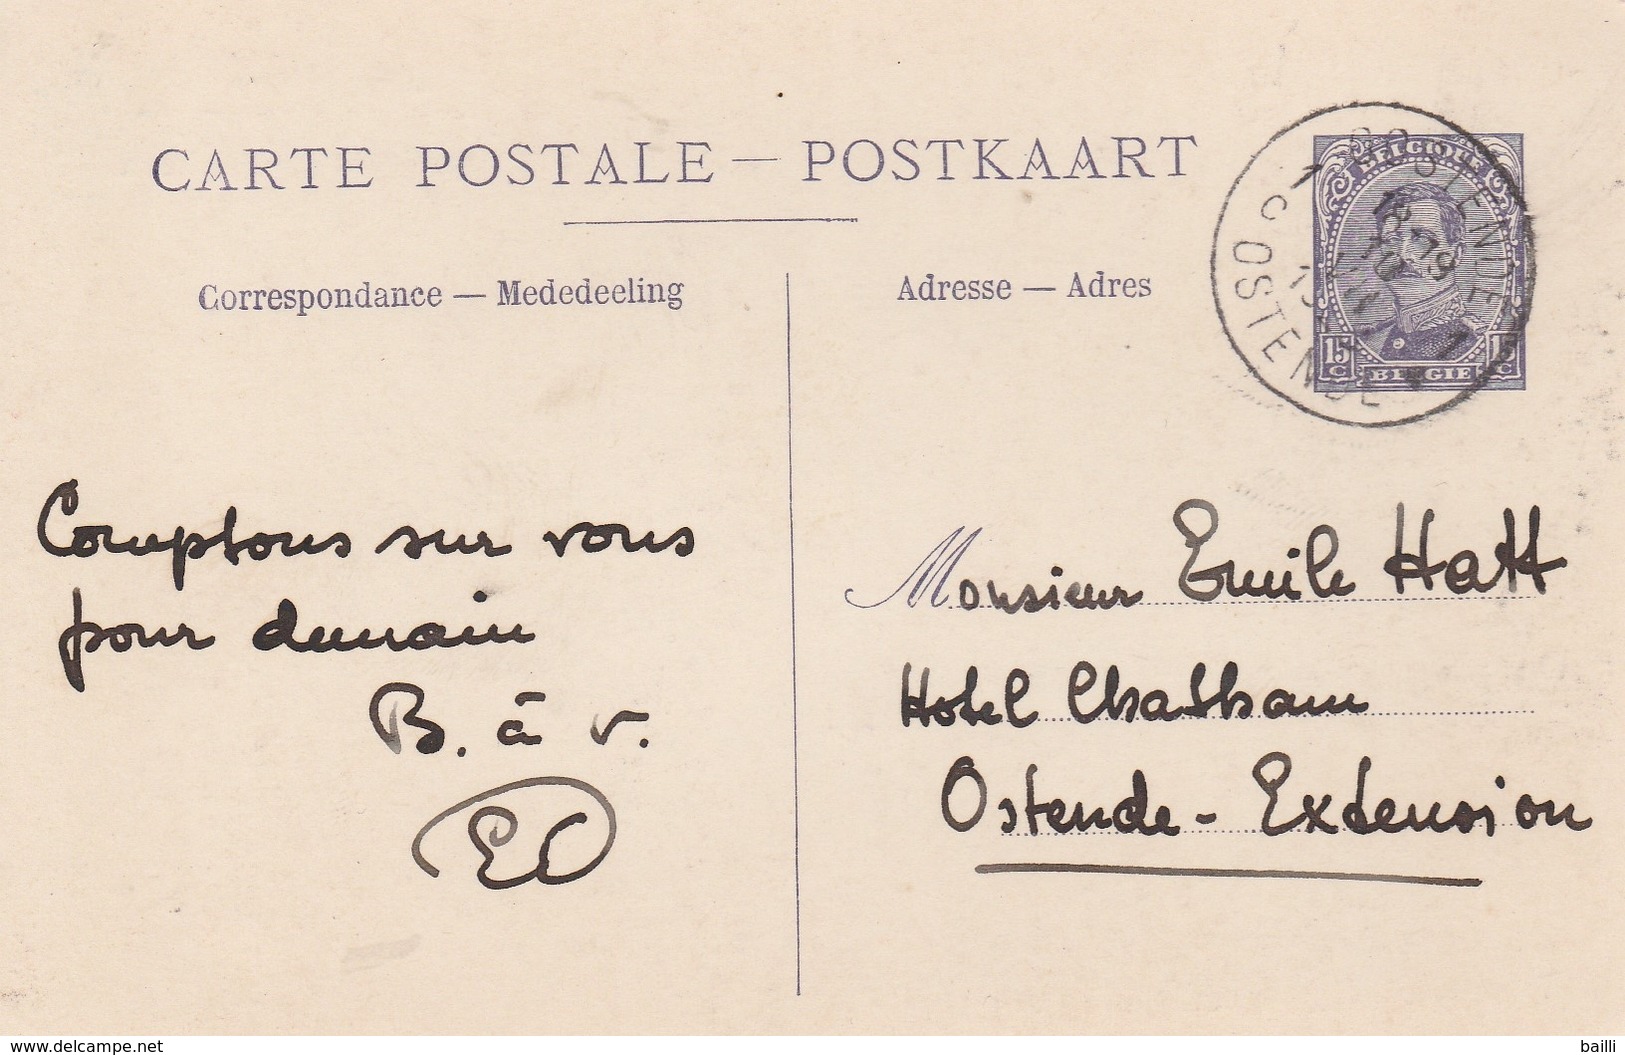 CARTE POSTALE — POSTKAART
Correspondance — Mededeeling
Adresse — Adres
BELGIQUE
15 C
BELGIE
15 C
OOSTENDE 1
OSTENDE 1
Comptons sur vous
pour demain
B. à v.
EC
Monsieur Emile Hatt
Hotel Chatham
Ostende - Extension
delcampe.net
bailli